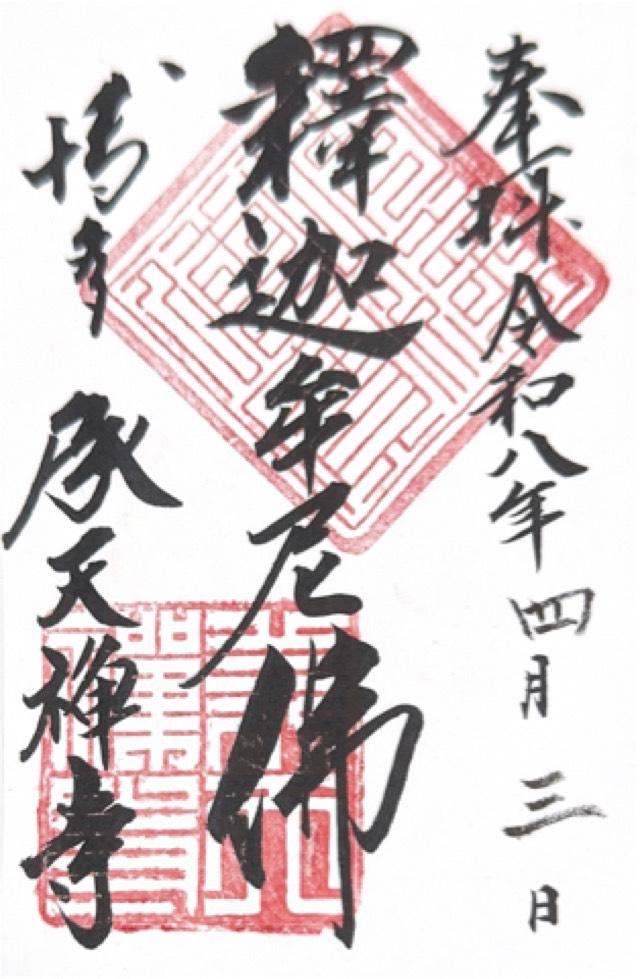 奉拝 令和八年 四月 三 日
釋迦牟尼佛
博多 承天禅寺